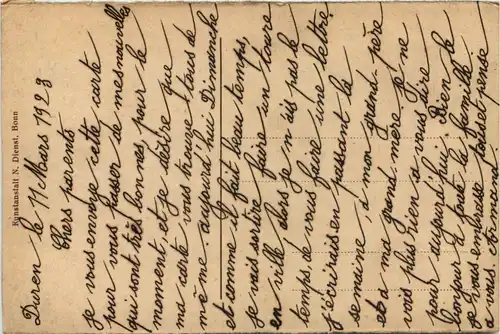 Duren le 11 Mars 1923
Chers parents
je vous envoye cette carte
pour vous passer de mes nouvelles
qui sont très bonnes pour le
moment, et je désire que
ma carte vous trouve tous de
même. aujourd'hui Dimanche
et comme il fait beau temps,
je vais sortire faire un toure
en ville alors je n'ais pas le
temps de vous faire une lettre.
j'écrirais en passant la
semaine, à mon grand père
et a ma grand mère. je ne
vois plus rien à vous dire
pour aujourd'hui. Bien le
bonjour à toute la famille
je vous embrasse
à vous
Kunstanstalt N. Dienst, Bonn